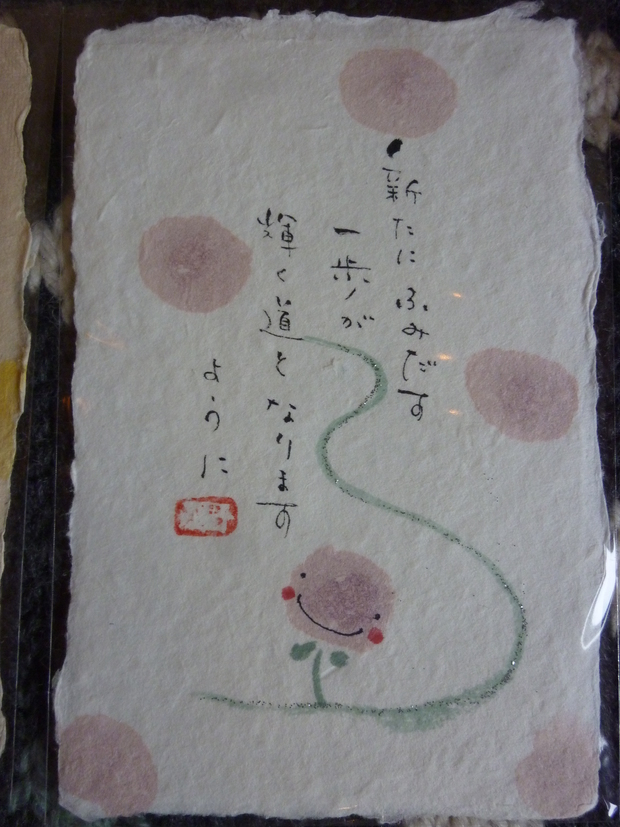 新たにふみだす
一歩が
輝く道となります
ように